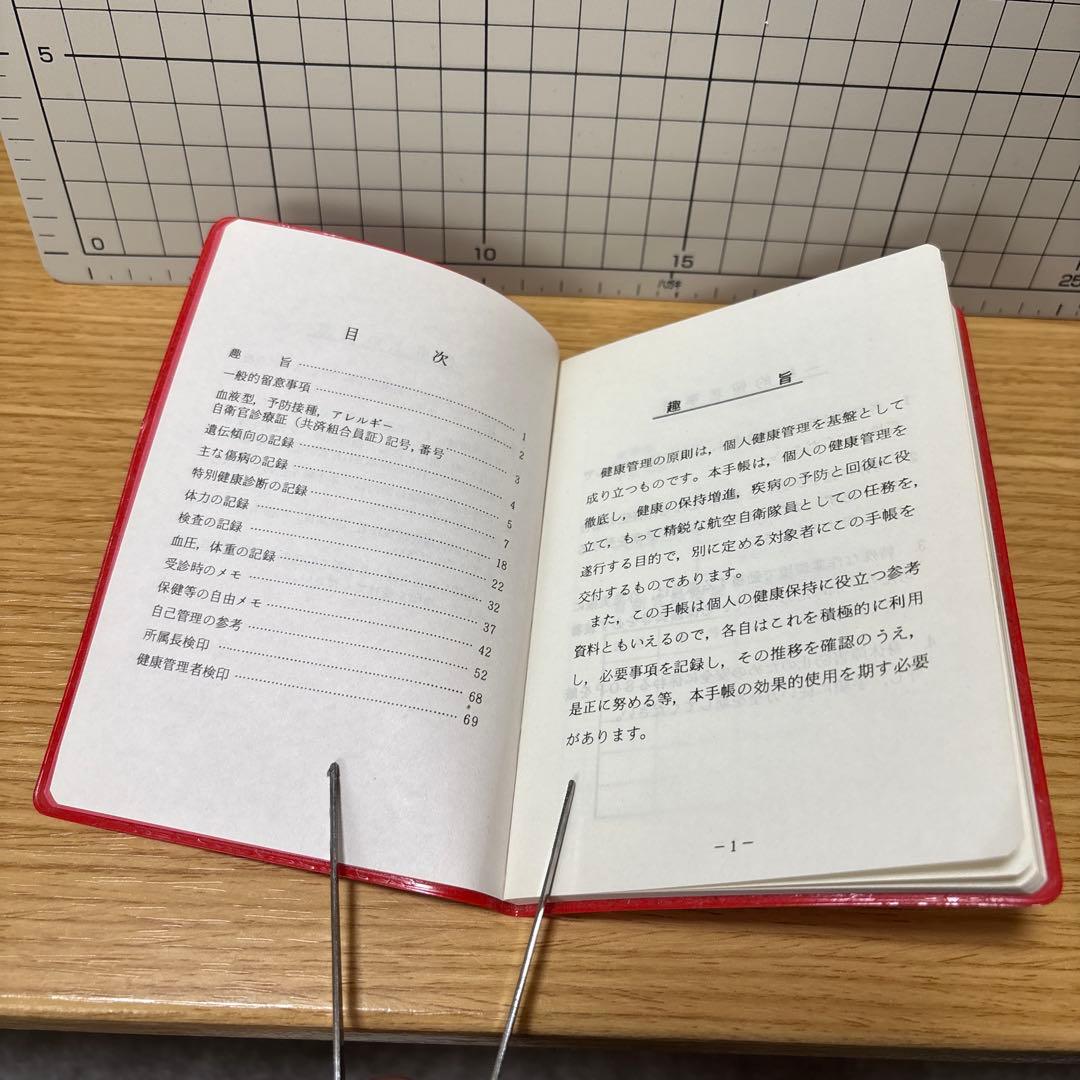 5
0
10
15
25
目　次
趣　旨……………………1
一般的留意事項……………………2
血液型，予防接種，アレルギー
自衛官診療証（共済組合員証）記号，番号……3
遺伝傾向の記録……………………4
主な傷病の記録……………………5
特別健康診断の記録……………………7
体力の記録……………………18
検査の記録……………………22
血圧，体重の記録……………………32
受診時のメモ……………………37
保健等の自由メモ……………………42
自己管理の参考……………………52
所属長検印……………………68
健康管理者検印……………………69
趣　旨
健康管理の原則は，個人健康管理を基盤として
成り立つものです。本手帳は，個人の健康管理を
徹底し，健康の保持増進，疾病の予防と回復に役
立て，もって精鋭な航空自衛隊員としての任務を，
遂行する目的で，別に定める対象者にこの手帳を
交付するものであります。
また，この手帳は個人の健康保持に役立つ参考
資料ともいえるので，各自はこれを積極的に利用
し，必要事項を記録し，その推移を確認のうえ，
是正に努める等，本手帳の効果的使用を期す必要
があります。
－1－